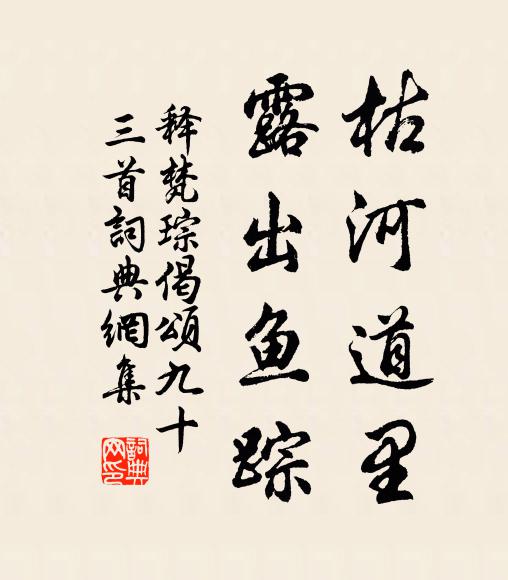 枯河道里
露出鱼踪
释梵琮偈颂九十
三首詞典網集
詞典网印